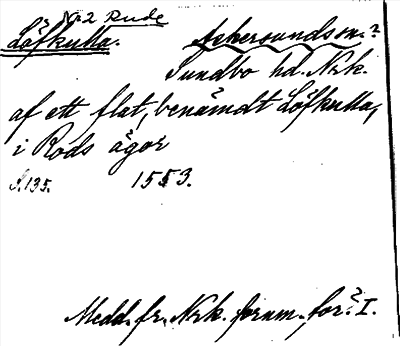 2 Rude
Löfkulla. Askersunds sn.?
Sundbo hd. Nrk.
af ett flat, benämdt Löfkulla,
i Rods ägor
S. 135. 1553.
Medd. fr. Nrk. fornm. för. I.